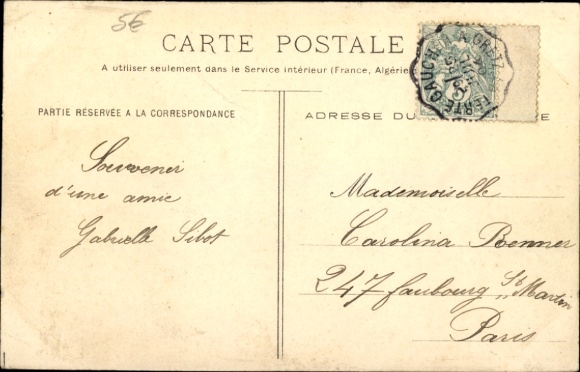 5€
CARTE POSTALE
A utiliser seulement dans le Service intérieur (France, Algérie
PARTIE RÉSERVÉE A LA CORRESPONDANCE
ADRESSE DU
RE
Souvenir
d'une amie
Gabrielle Sibot
Mademoiselle
Carolina Benner
247 faubourg St Martin
Paris
FERTE-GAUCHER A GRETZ
5